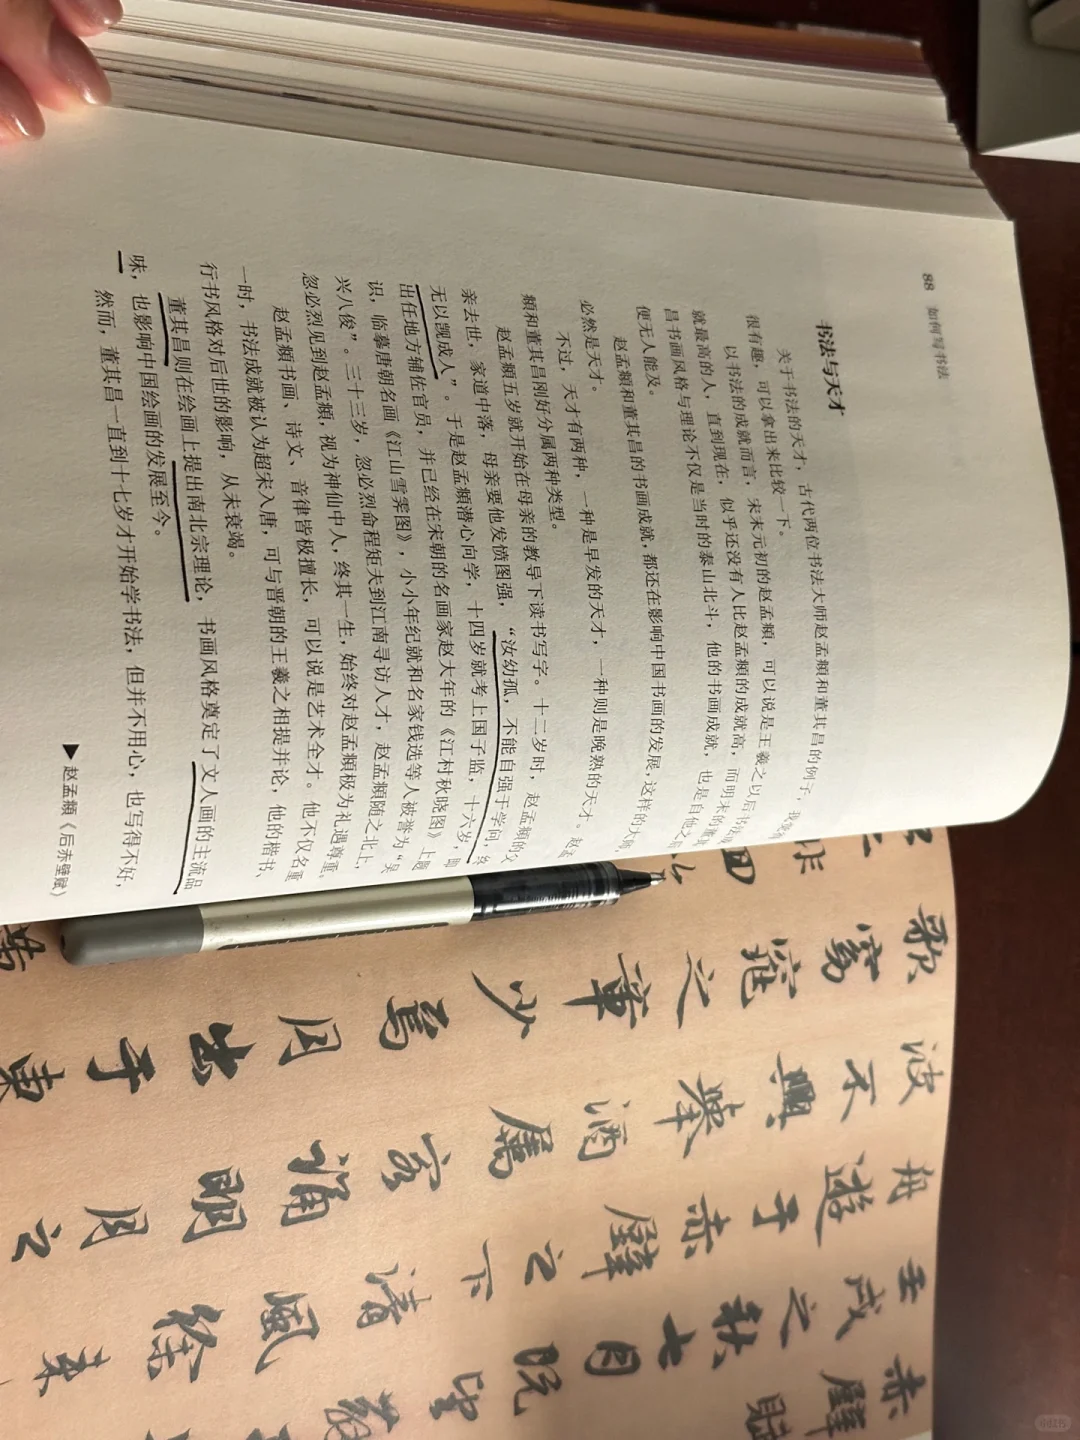 88 如何写书法
书法与天才
关于书法的天才，古代两位书法大师赵孟頫和董其昌的例子，我觉得
很有趣，可以拿出来比较一下。
以书法的成就而言，宋末元初的赵孟頫，可以说是王羲之以后书法成
就最高的人，直到现在，似乎还没有人比赵孟頫的成就高，而明末的董其
昌书画风格与理论不仅是当时的泰山北斗，他的书画成就，也是自他之后
便无人能及。
赵孟頫和董其昌的书画成就，都还在影响中国书画的发展，这样的大师，
必然是天才。
不过，天才有两种，一种是早发的天才，一种则是晚熟的天才。赵孟
頫和董其昌刚好分属两种类型。
赵孟頫五岁就开始在母亲的教导下读书写字。十二岁时，赵孟頫的父
亲去世，家道中落，母亲要他发愤图强，“汝幼孤，不能自强于学问，终
无以觊成人”。于是赵孟頫潜心向学，十四岁就考上国子监，十六岁，即
出任地方辅佐官员，并已经在宋朝的名画家赵大年的《江村秋晓图》上题
识，临摹唐朝名画《江山雪霁图》，小小年纪就和名家钱选等人被誉为“吴
兴八俊”。三十三岁，忽必烈命程矩夫到江南寻访人才，赵孟頫随之北上，
忽必烈见到赵孟頫，视为神仙中人，终其一生，始终对赵孟頫极为礼遇尊重。
赵孟頫书画、诗文、音律皆极擅长，可以说是艺术全才。他不仅名重
一时，书法成就被认为超宋入唐，可与晋朝的王羲之相提并论，他的楷书、
行书风格对后世的影响，从未衰竭。
董其昌则在绘画上提出南北宗理论，书画风格奠定了文人画的主流品
味，也影响中国绘画的发展至今。
然而，董其昌一直到十七岁才开始学书法，但并不用心，也写得不好，
▶ 赵孟頫《后赤壁赋》
赤壁賦
壬戌之秋七月既望蘇
舟遊于赤壁之下清風徐来
波不興舉酒属客誦明月之
歌窈窕之章少焉月出于東